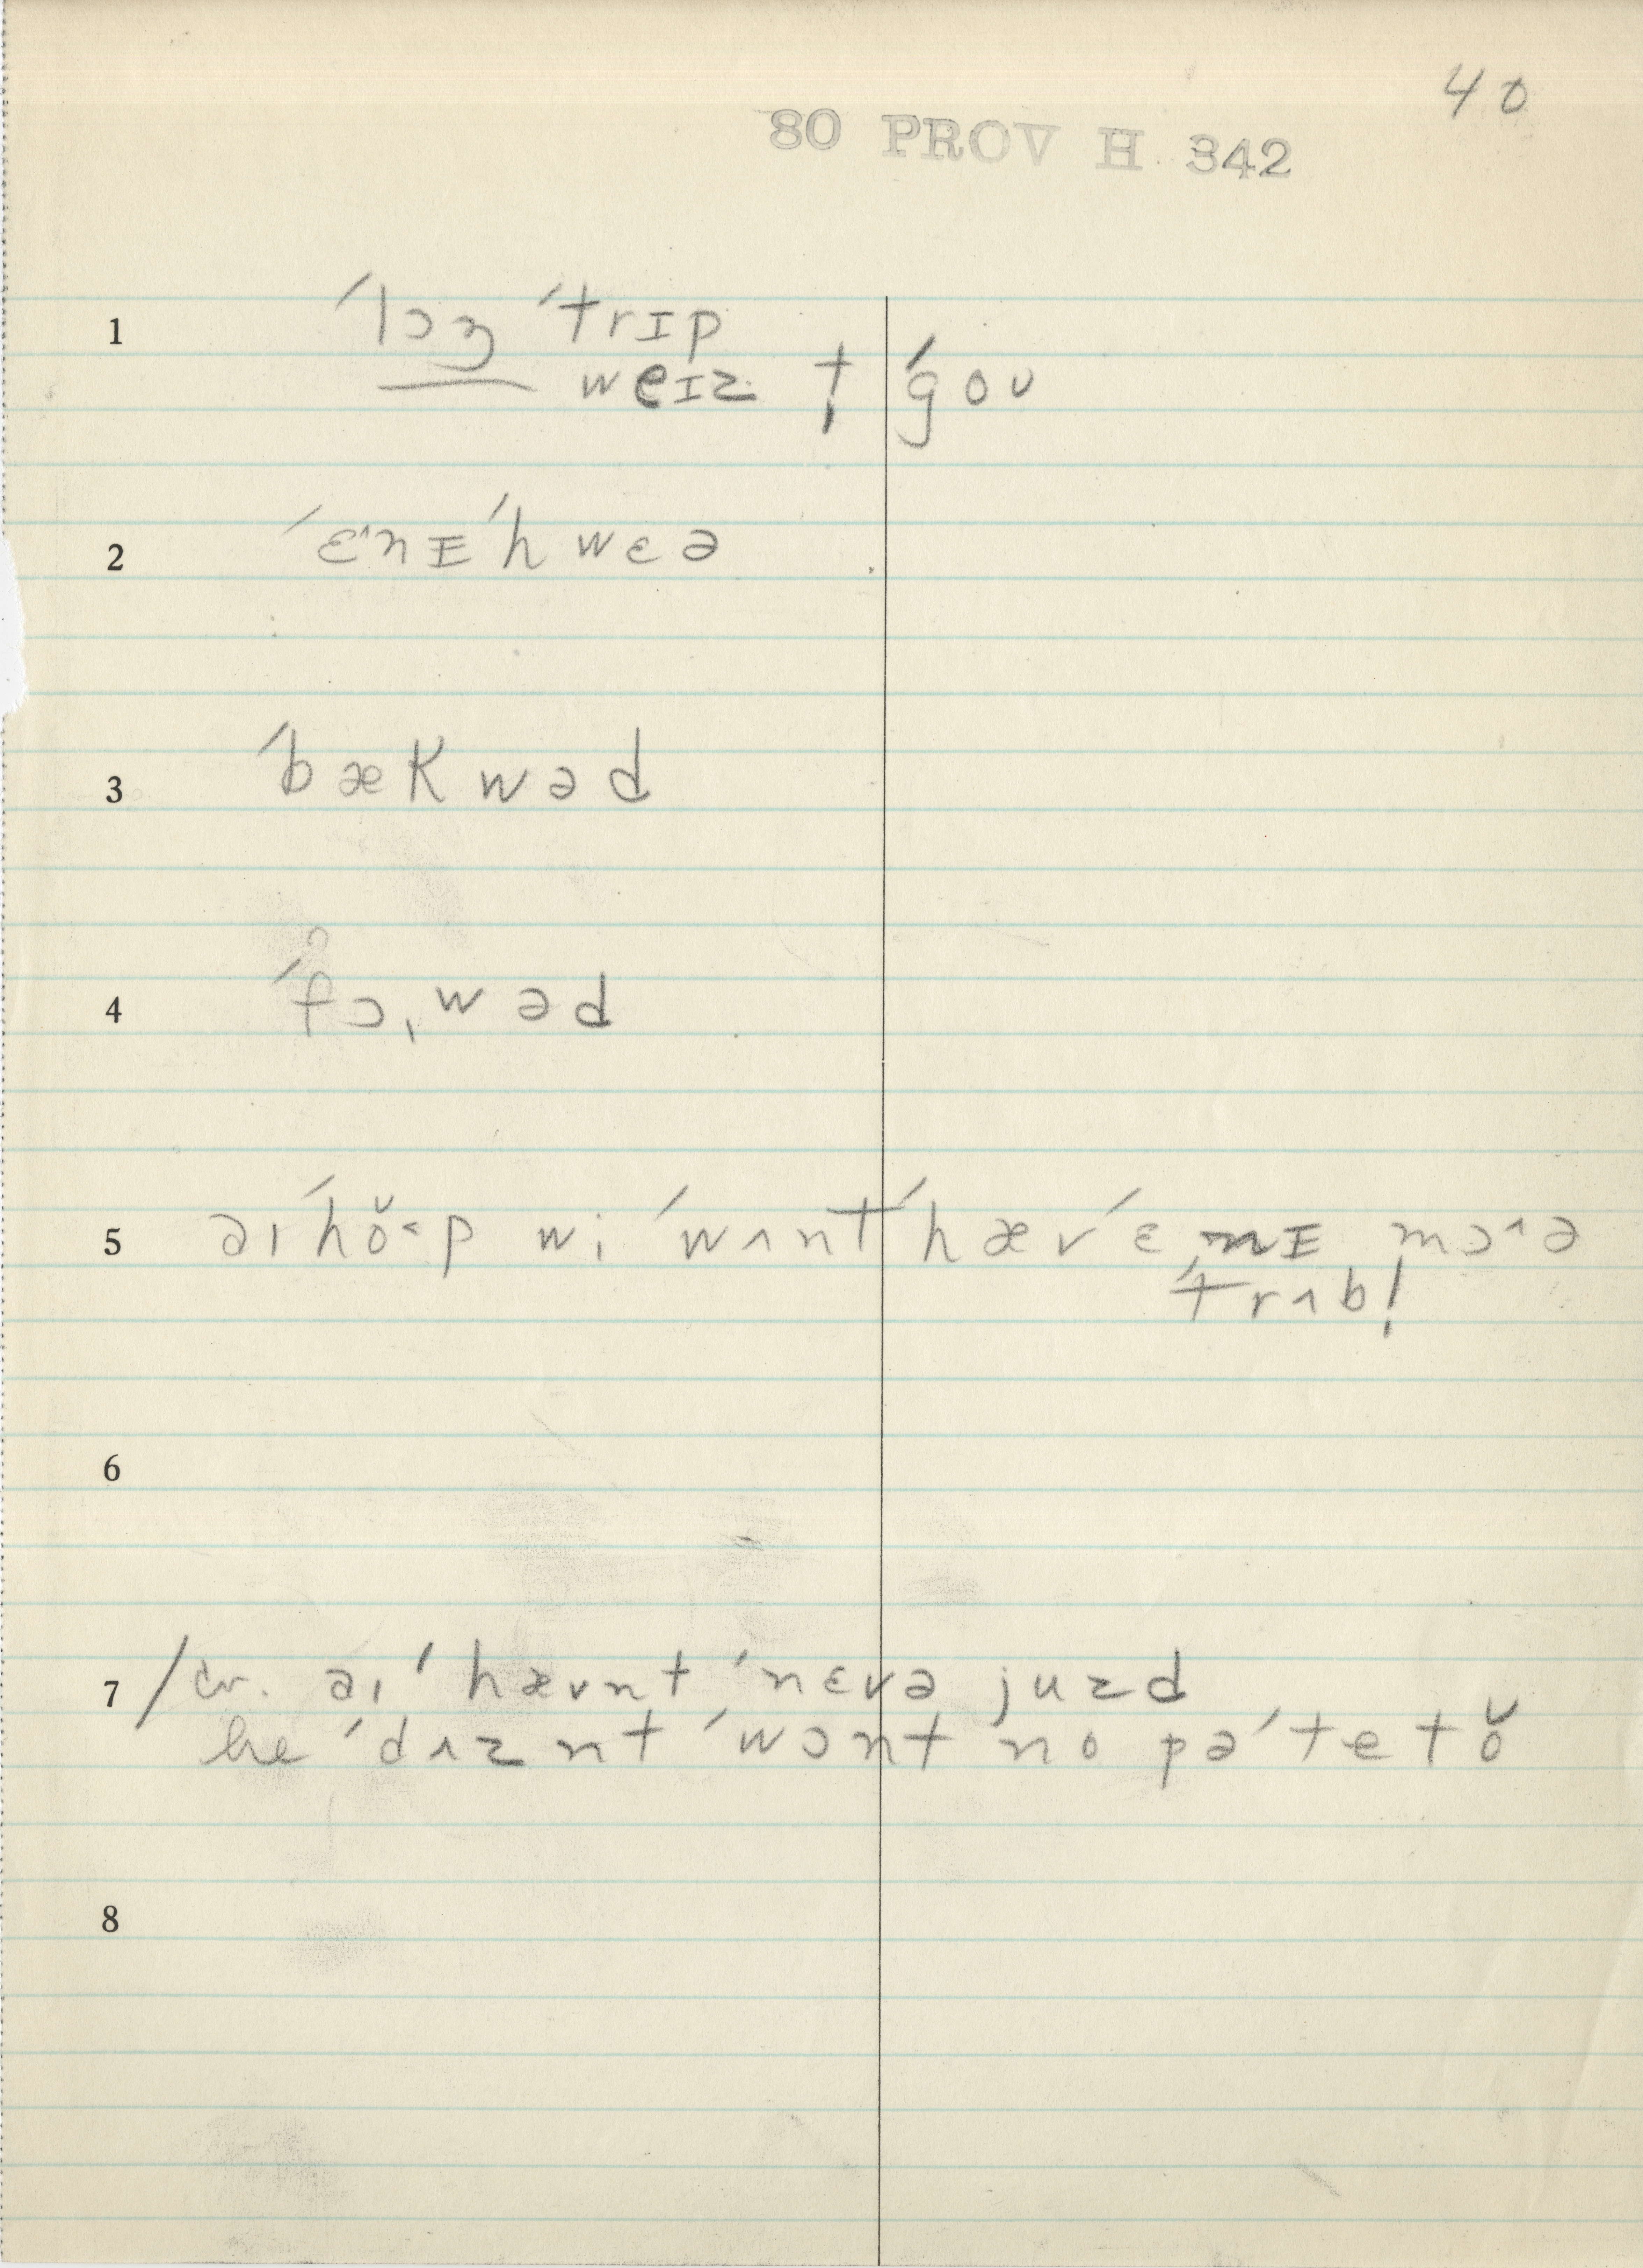 40
80 PROV H 342
1 ˈlɔŋ ˈtrɪp
— weɪz t̩ ˈgoʊ
2 ˈɛ^nɪˈhwɛə
3 ˈbækwəd
4 ˈfɔ,wəd
5 əɪˈhŏ<p wi ˈwʌntˈhævˈɛnɪ mɔ^ə
ˈtrʌbl̩
6
7 /cv. əɪ ˈhævnt ˈnɛvə juzd
he ˈdʌznt ˈwɔnt no pəˈtetŏ
8